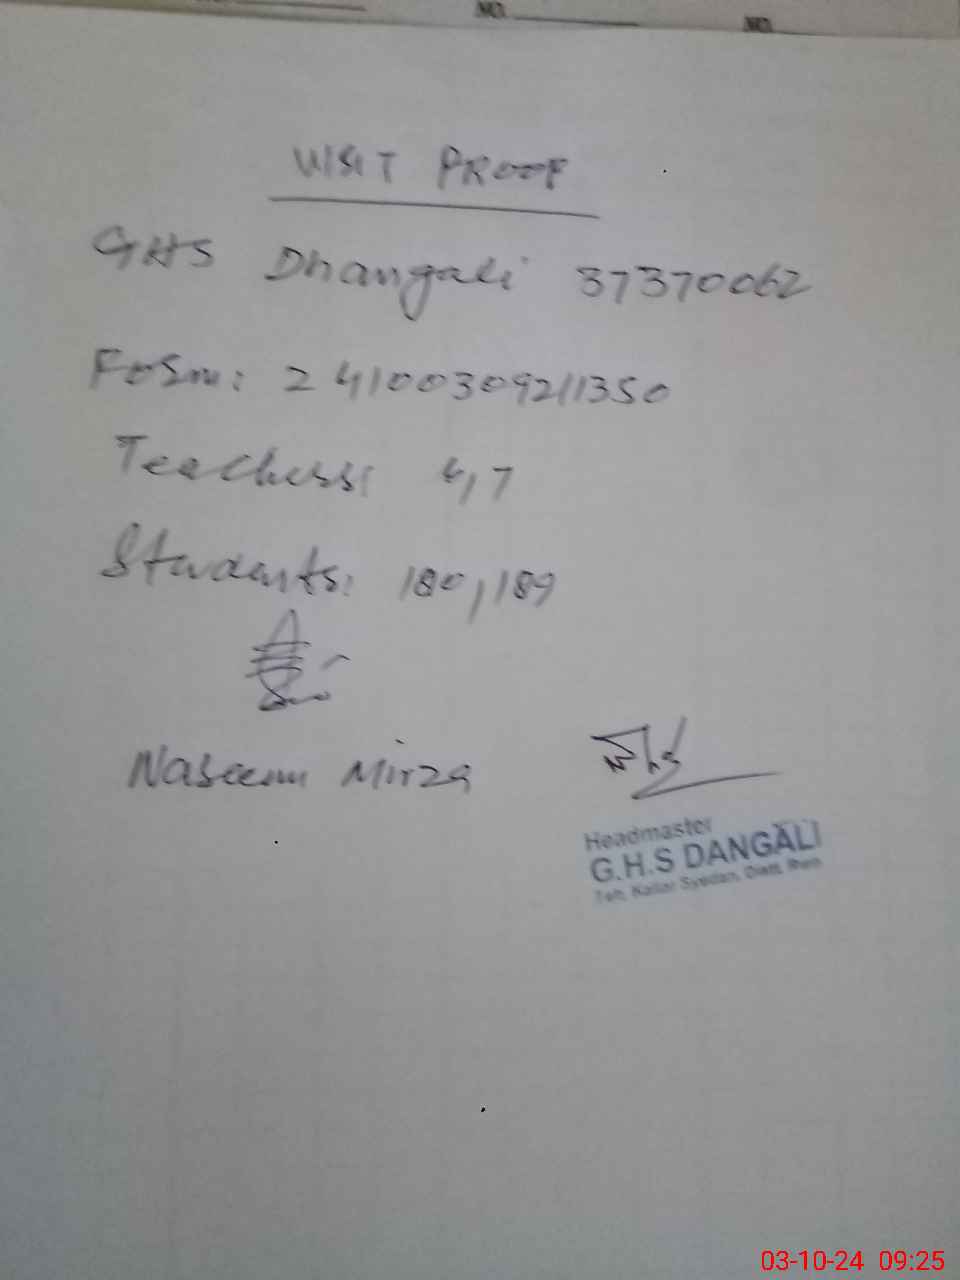 No.
No.
VISIT PROOF
GHS Dhangali 37370062
Form: 24100309211350
Teachers: 4,7
Students: 180,189
Naseem Mirza
Headmaster
G.H.S DANGALI
Teh; Kallar Syedan, Distt. Rwp
03-10-24 09:25